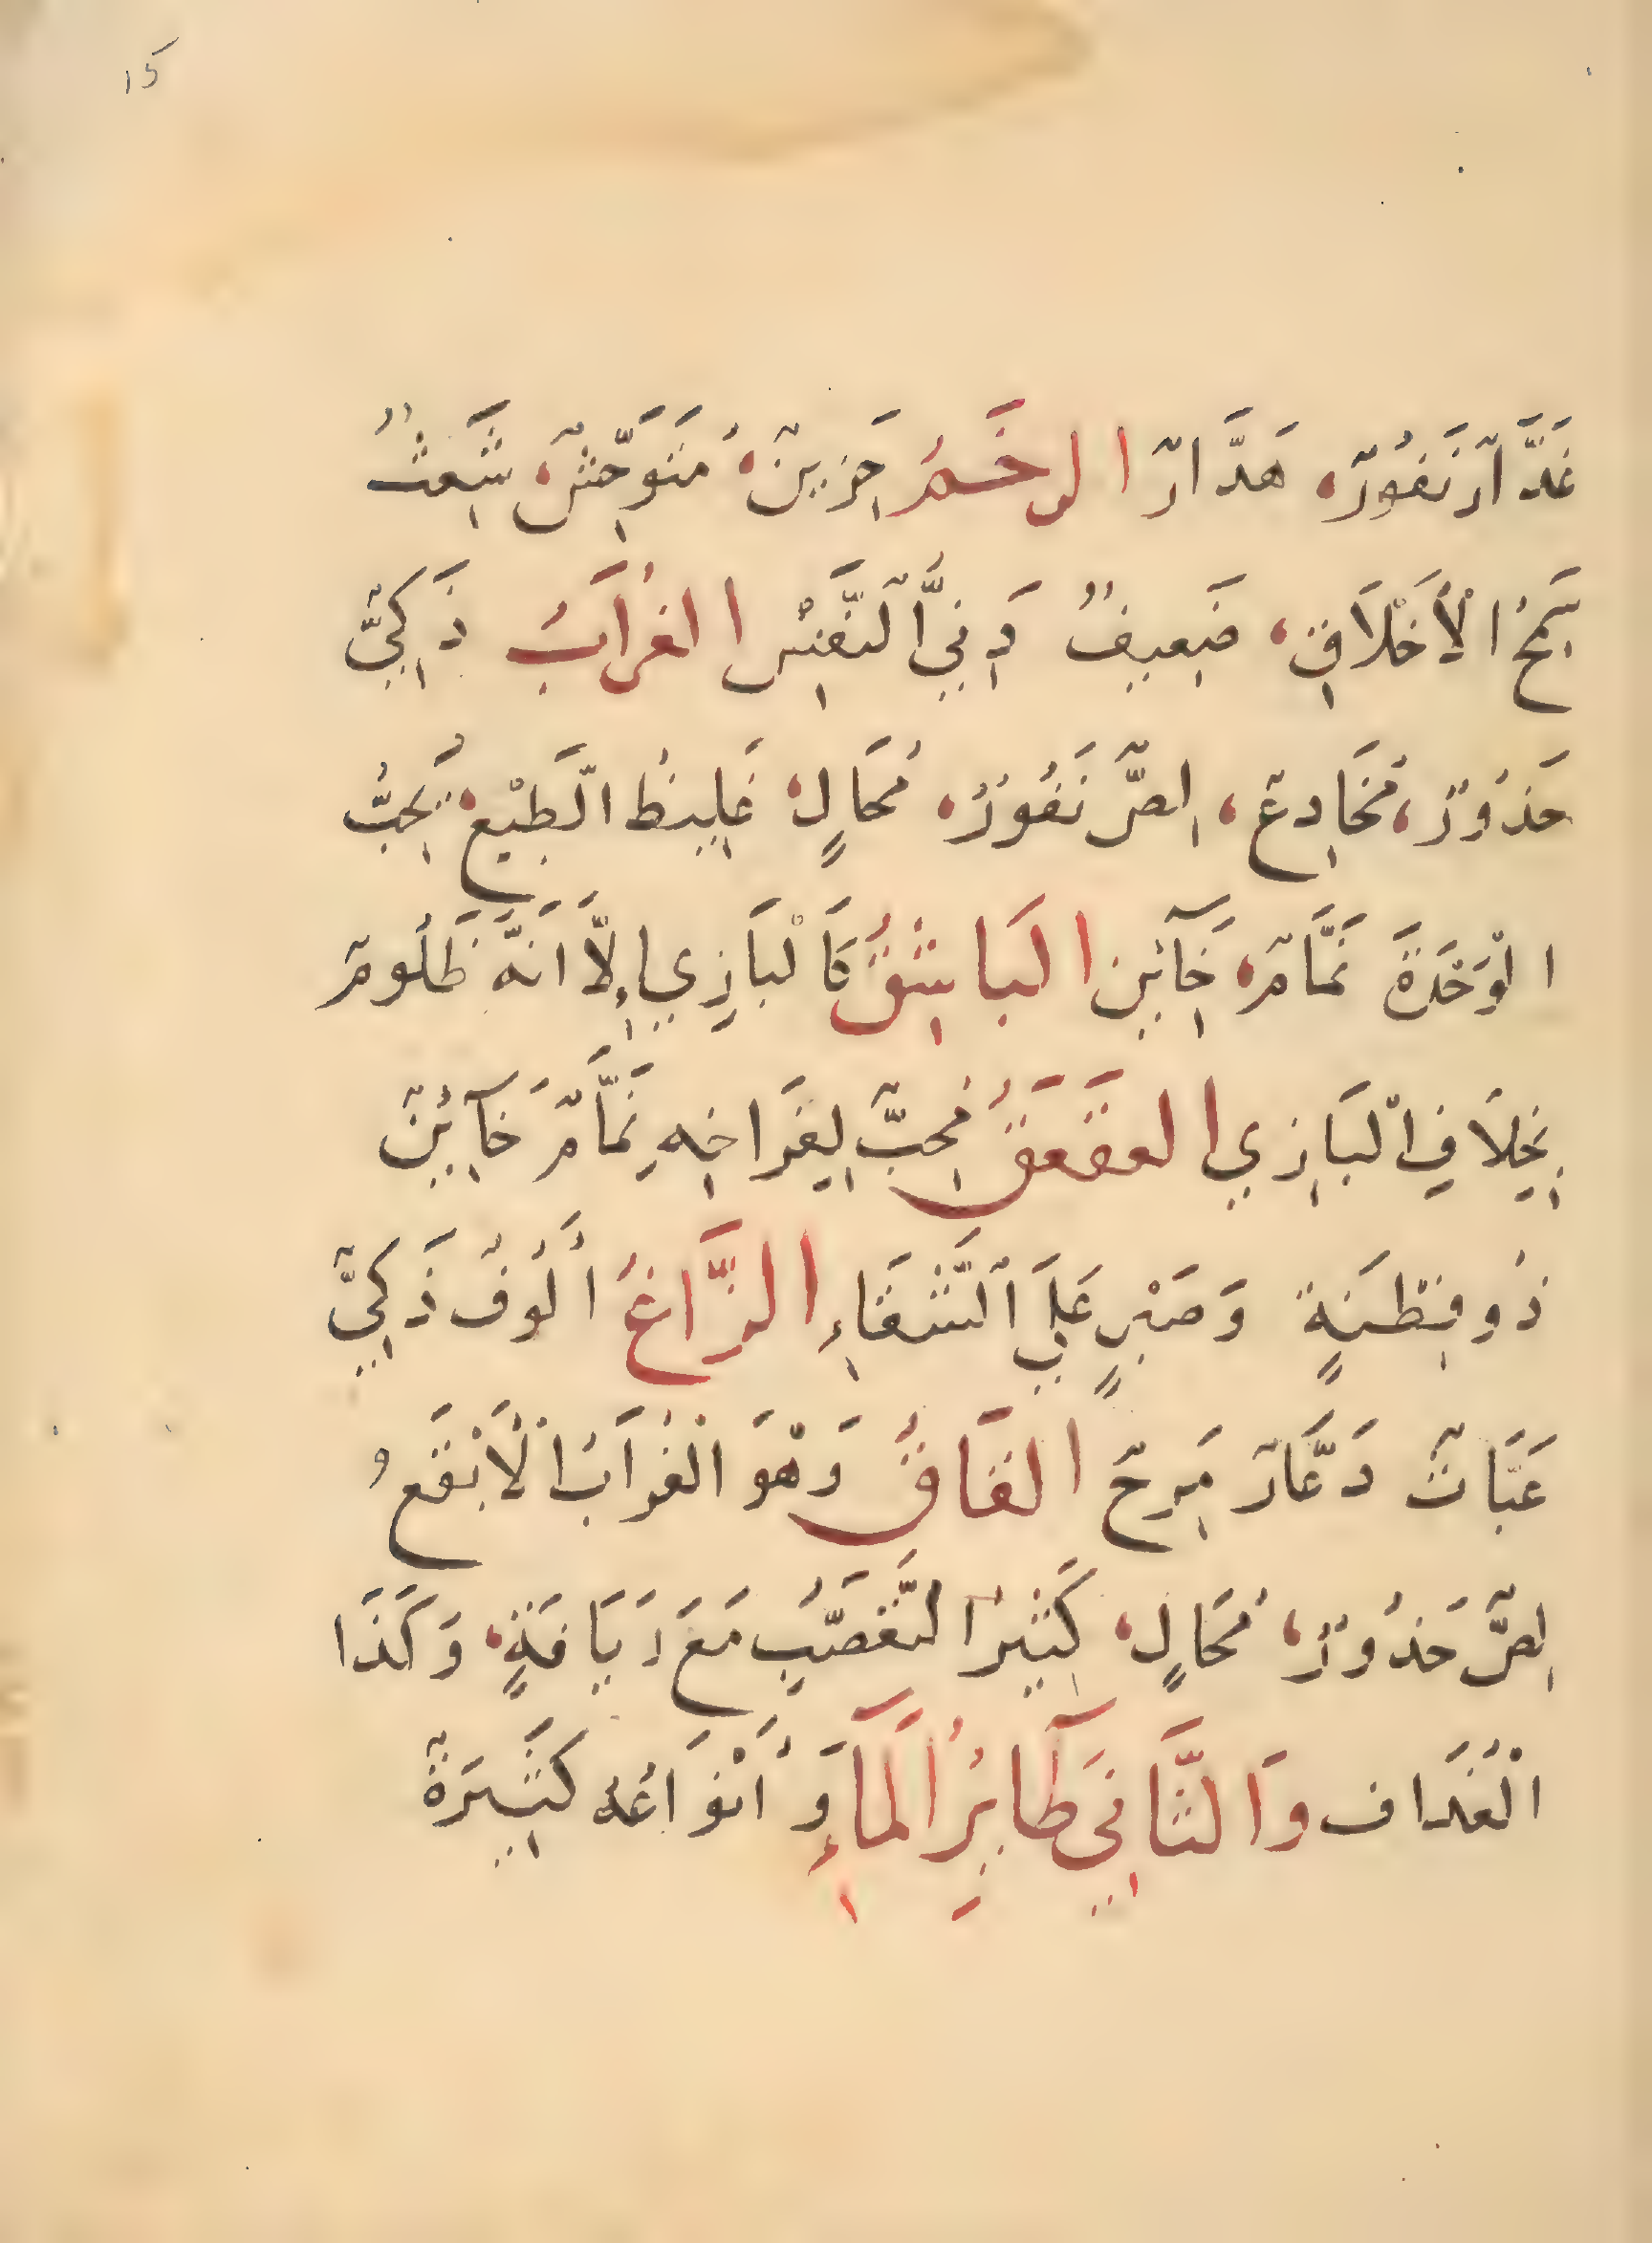 ١٥
غَدَّارٌ نَفُورٌ، هَدَّارٌ الرخَمُ حَزِينٌ، مُتَوَحِّشٌ، شَعِثٌ
سَمِجُ الْأَخْلَاقِ، ضَعِيفٌ دَنِيُّ النَّفَسِ الغُرَابُ ذَكِيٌّ
حَذُورٌ، مُخَادِعٌ، لِصٌّ نَفُورٌ، مُحَالٍ، غَلِيظُ الطَّبْعِ، يُحِبُّ
الْوَحْدَةَ نَمَّامٌ، خَآئِن البَاشِقُ كَالْبَازِي إِلَّا أَنَّهُ ظَلُومٌ
بِخِلَافِ الْبَازِي العقعَقُ مُحِبٌّ لِفِرَاخِهِ نَمَّامٌ خَآئِنٌ
ذُو فِطْنَةٍ وَصَبْرٍ عَلَي الشَّقَاءِ الزَّاغُ أَلُوفٌ ذَكِيٌّ
عَبَّاثٌ دَعَّارٌ مَرِحٌ القَاقُ وَهْوَ الْغُرَابُ الْأَبْقَعُ
لِصٌّ حَذُورٌ، مُحَالٍ، كَثِيرُ التَّعَصُّبِ مَعَ دِيَافَةٍ، وَكَذَا
الْغُدَاف وَالثَّانِي طَآيِرُ الْمَآءِ وَأَنْوَاعُهُ كَثِيرَةٌ